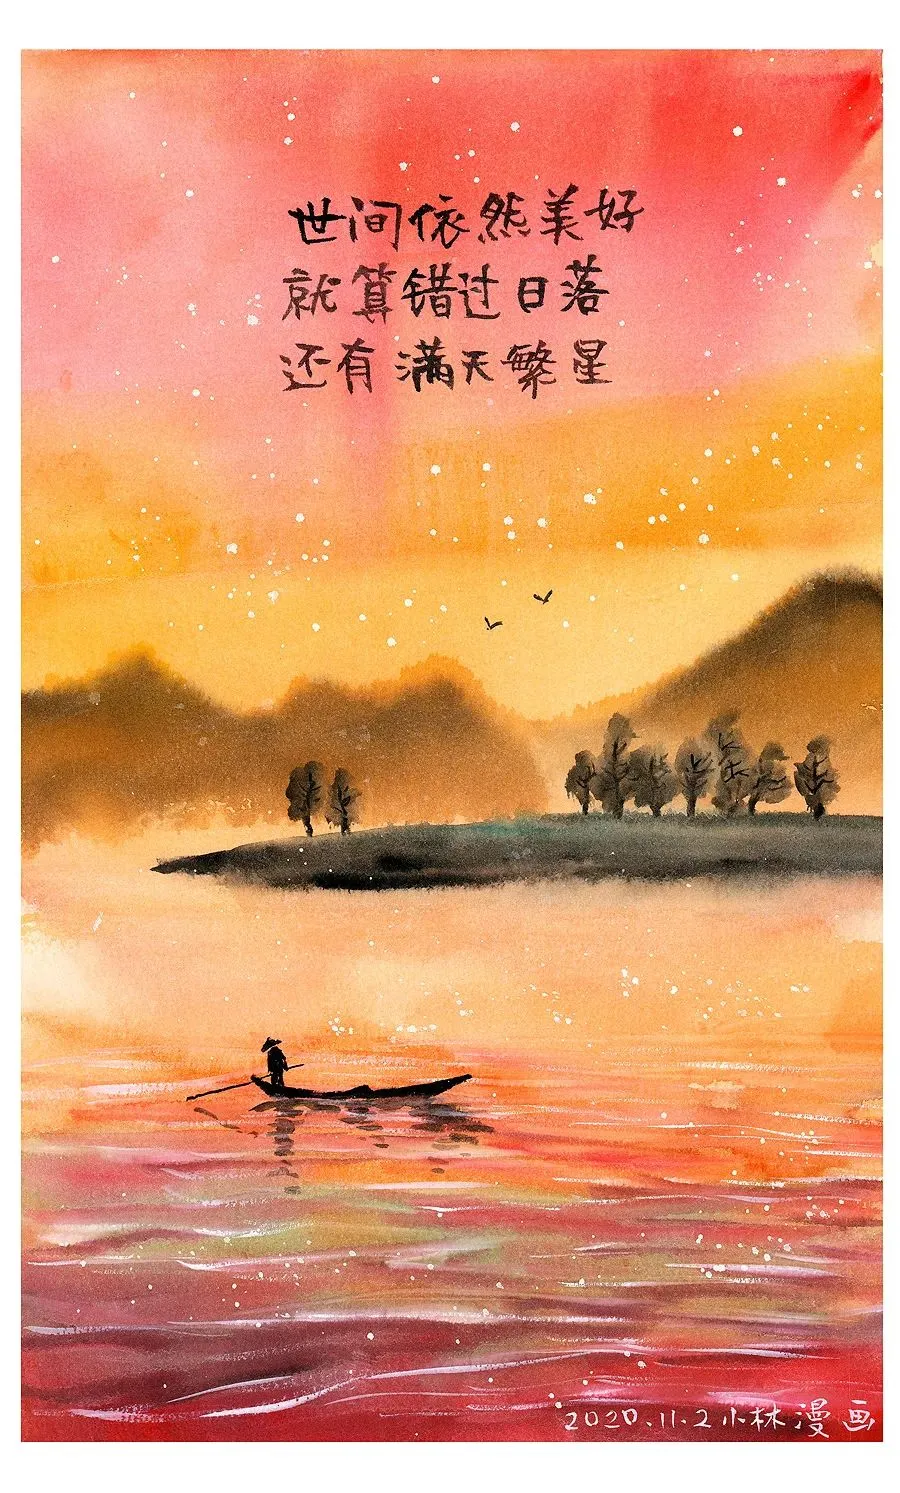 世间依然美好
就算错过日落
还有满天繁星
2020.11.2小林漫画